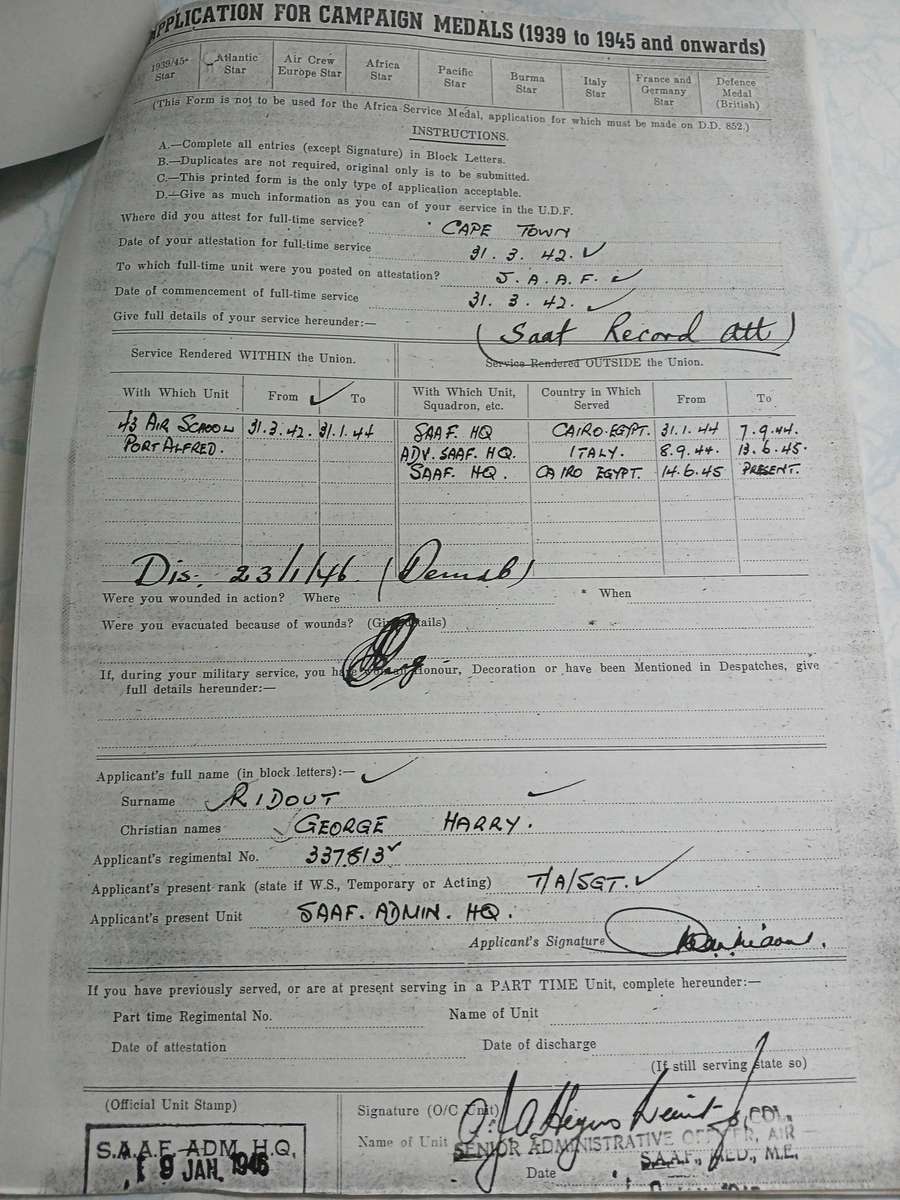 APPLICATION FOR CAMPAIGN MEDALS (1939 to 1945 and onwards)
1939/45 Star | Atlantic Star | Air Crew Europe Star | Africa Star | Pacific Star | Burma Star | Italy Star | France and Germany Star | Defence Medal (British)
(This Form is not to be used for the Africa Service Medal, application for which must be made on D.D. 852.)
INSTRUCTIONS.
A.—Complete all entries (except Signature) in Block Letters.
B.—Duplicates are not required, original only is to be submitted.
C.—This printed form is the only type of application acceptable.
D.—Give as much information as you can of your service in the U.D.F.
Where did you attest for full-time service? CAPE TOWN
Date of your attestation for full-time service 31. 3. 42.
To which full-time unit were you posted on attestation? S.A.A.F.
Date of commencement of full-time service 31. 3. 42.
Give full details of your service hereunder:—
(Saaf Record Att)
Service Rendered WITHIN the Union. Service Rendered OUTSIDE the Union.
With Which Unit | From | To | With Which Unit, Squadron, etc. | Country in Which Served | From | To
43 AIR SCHOOL 31.3.42. 31.1.44 SAAF. HQ CAIRO. EGYPT. 31.1.44 7.9.44.
PORT ALFRED. ADV. SAAF. HQ. ITALY. 8.9.44. 13.6.45.
SAAF. HQ. CAIRO EGYPT. 14.6.45 PRESENT.
Dis. 23/1/46 (Demob)
Were you wounded in action? Where When
Were you evacuated because of wounds? (Give details)
If, during your military service, you have won an Honour, Decoration or have been Mentioned in Despatches, give
full details hereunder:—
Applicant's full name (in block letters):—
Surname RIDOUT
Christian names GEORGE HARRY.
Applicant's regimental No. 337813
Applicant's present rank (state if W.S., Temporary or Acting) T/A/SGT.
Applicant's present Unit SAAF. ADMIN. HQ.
Applicant's Signature
If you have previously served, or are at present serving in a PART TIME Unit, complete hereunder:—
Part time Regimental No. Name of Unit
Date of attestation Date of discharge
(If still serving state so)
(Official Unit Stamp) Signature (O/C Unit)
S.A.A.F. ADM. H.Q.
19 JAN. 1946
Name of Unit COL.
SENIOR ADMINISTRATIVE OFFICER, AIR
S.A.A.F., MED., M.E.
Date